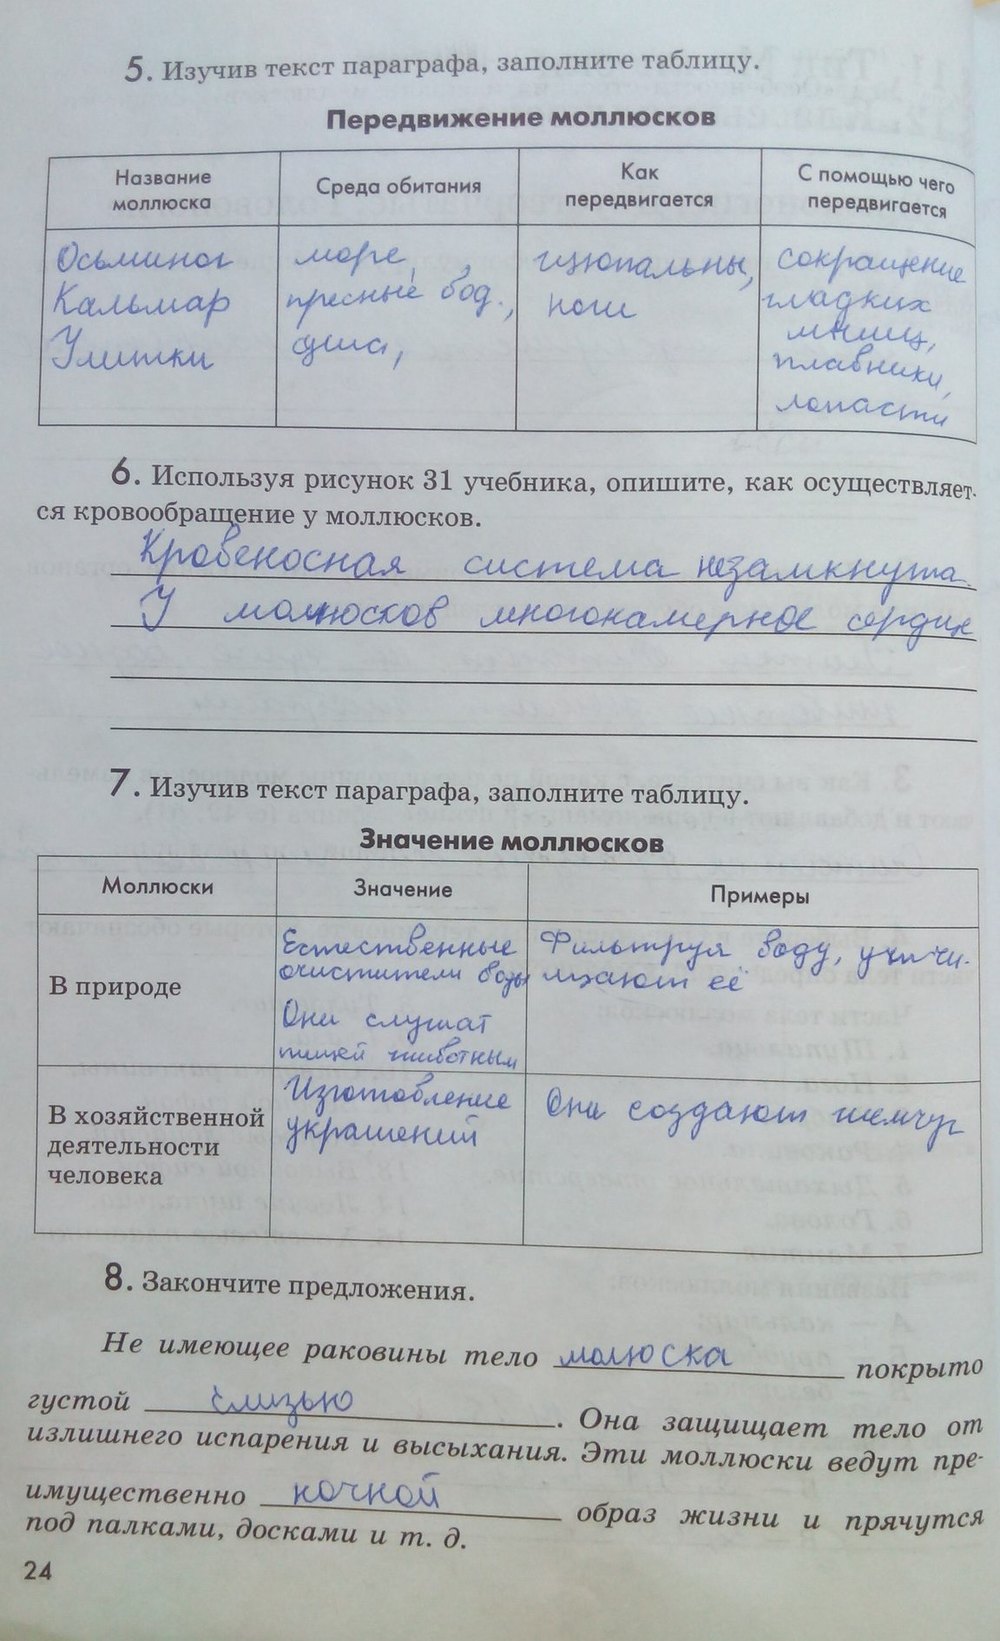 5. Изучив текст параграфа, заполните таблицу.
Передвижение моллюсков
Название моллюска
Среда обитания
Как передвигается
С помощью чего передвигается
Осьминог
Кальмар
Улитки
море,
пресные вод.,
суша,
щюпальцы,
ноги
сокращение
гладких
мышц,
плавники,
лопасти
6. Используя рисунок 31 учебника, опишите, как осуществляет-
ся кровообращение у моллюсков.
Кровеносная система незамкнута
У молюсков многокамерное сердце
7. Изучив текст параграфа, заполните таблицу.
Значение моллюсков
Моллюски
Значение
Примеры
В природе
Естественные
очистители воды
Они служат
пищей животным
Фильтруя воду, они очи-
щают её
В хозяйственной
деятельности
человека
Изготовление
украшений
Они создают жемчуг
8. Закончите предложения.
Не имеющее раковины тело молюска покрыто
густой слизью. Она защищает тело от
излишнего испарения и высыхания. Эти моллюски ведут пре-
имущественно ночной образ жизни и прячутся
под палками, досками и т. д.
24